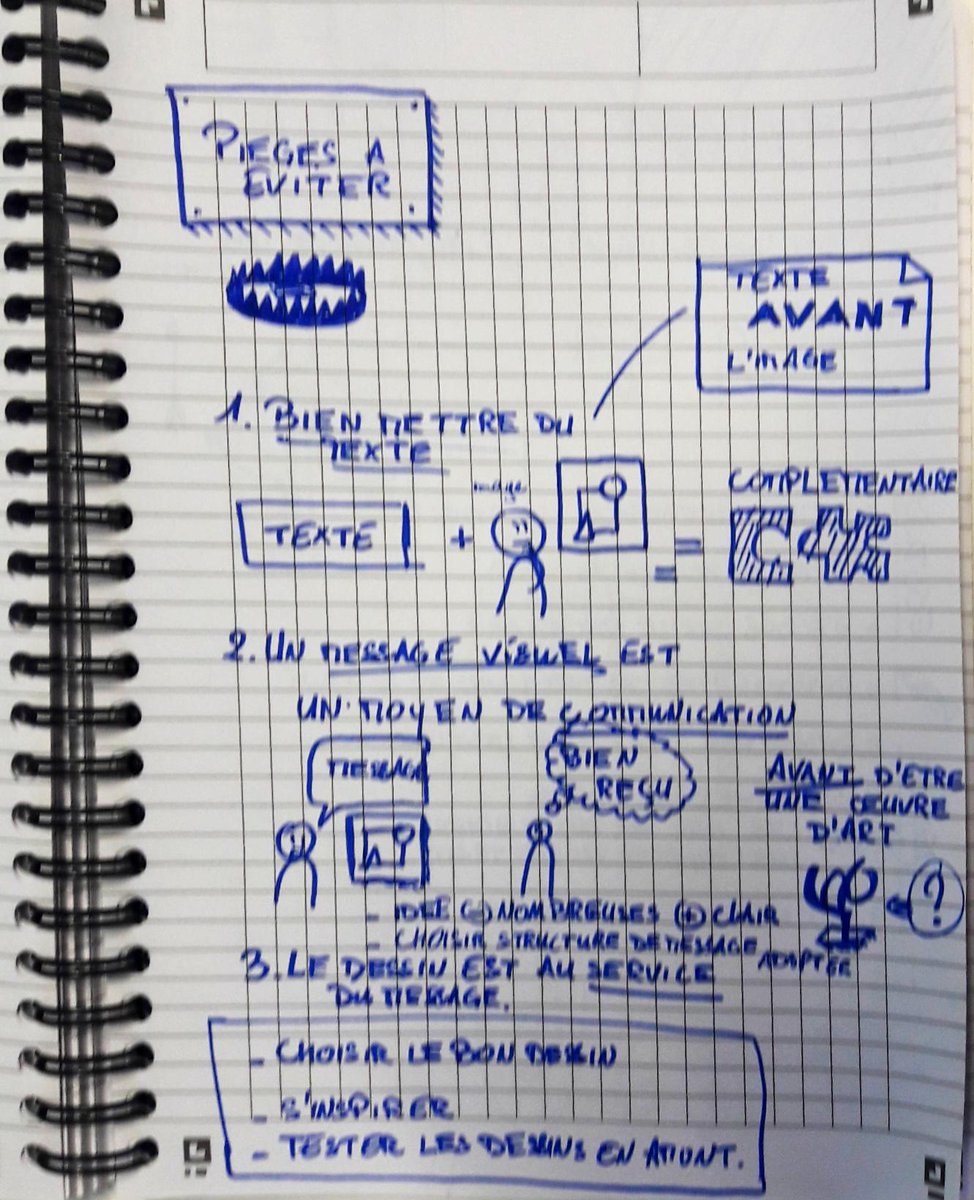 PIEGES A
EVITER
TEXTE
AVANT
L'IMAGE
1. BIEN METTRE DU
TEXTE
TEXTE
+
image
=
COMPLEMENTAIRE
2. UN MESSAGE VISUEL EST
UN MOYEN DE COMMUNICATION
MESSAGE
BIEN
REÇU
AVANT D'ETRE
UNE ŒUVRE
D'ART
?
- IDEE (-) NOMBREUSES (+) CLAIR
- CHOISIR STRUCTURE DE MESSAGE
ADAPTEE
3. LE DESSIN EST AU SERVICE
DU MESSAGE.
- CHOISIR LE BON DESSIN
- S'INSPIRER
- TESTER LES DESSINS EN AMONT.